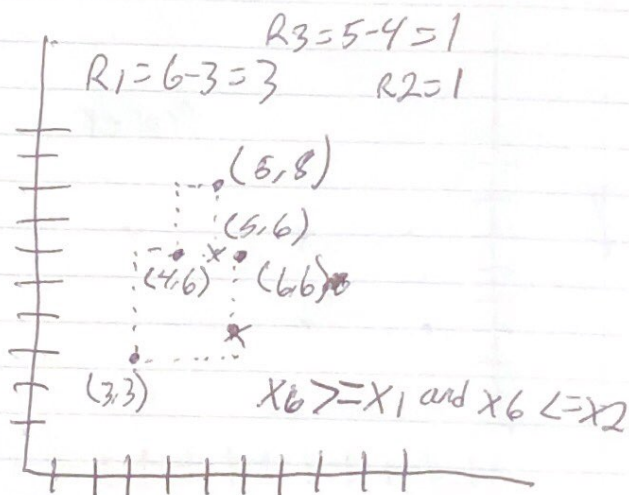 R3=5-4=1
R1=6-3=3 R2=1
(5,8)
(5,6)
(4,6) (6,6)
(3,3) x6 >=x1 and x6 <=x2